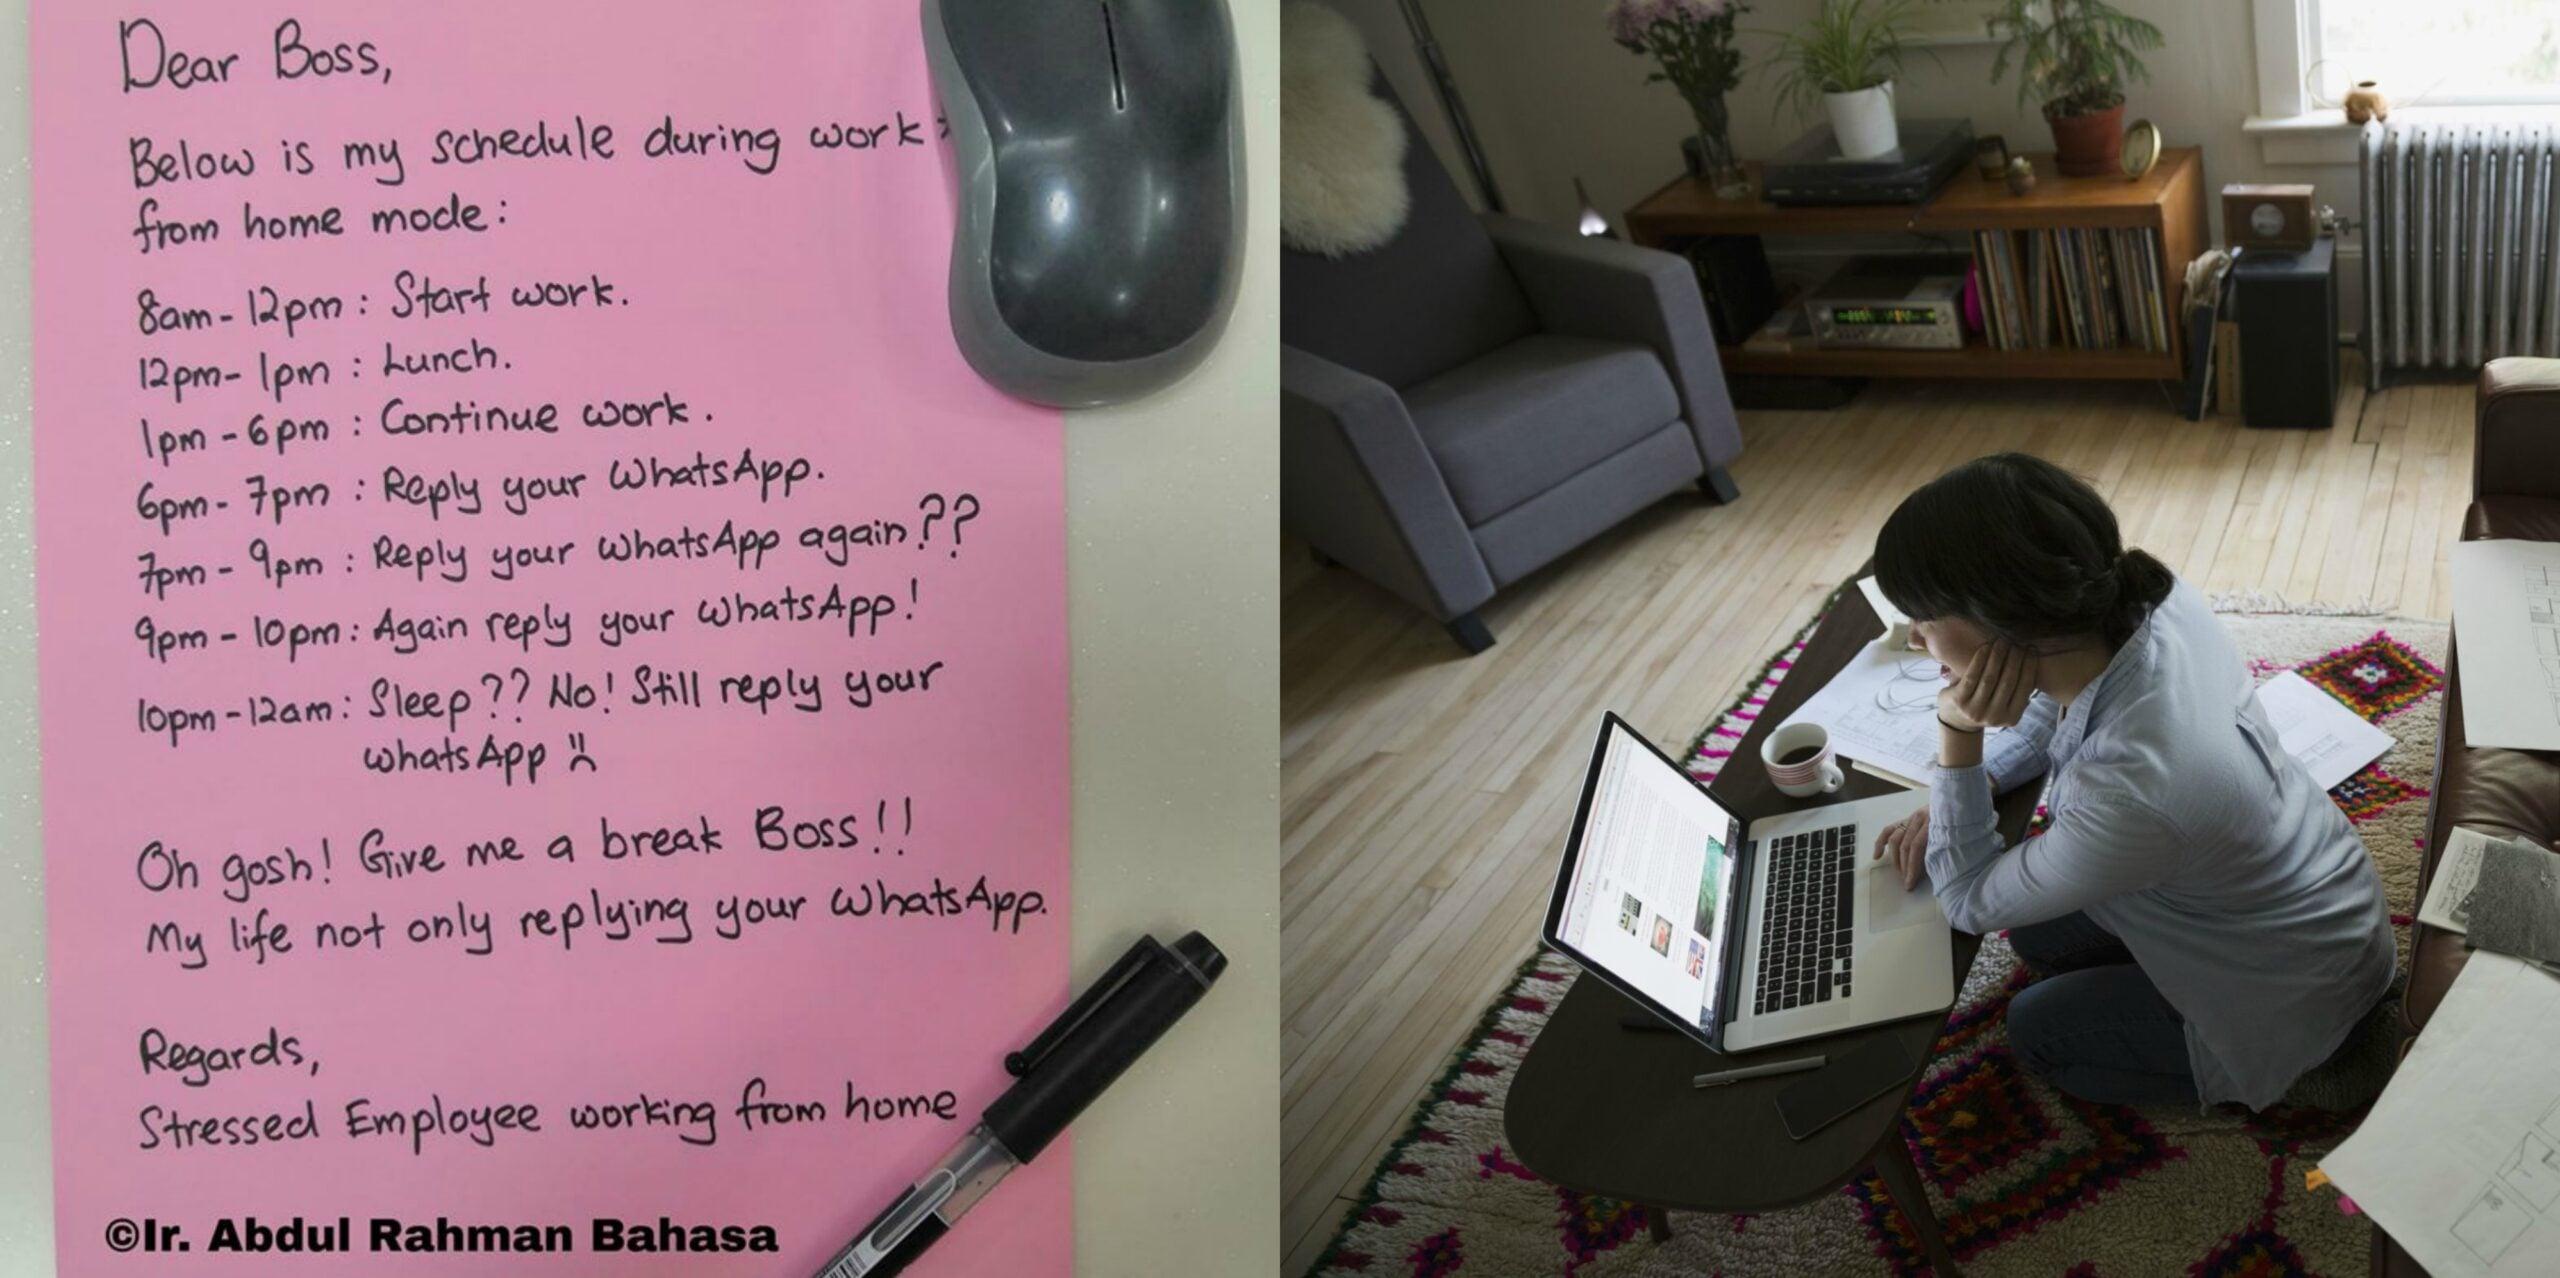 Dear Boss,
Below is my schedule during work
from home mode:
8am - 12pm : Start work.
12pm - 1pm : Lunch.
1pm - 6pm : Continue work.
6pm - 7pm : Reply your WhatsApp.
7pm - 9pm : Reply your WhatsApp again??
9pm - 10pm : Again reply your WhatsApp!
10pm - 12am : Sleep?? No! Still reply your
whatsApp
Oh gosh! Give me a break Boss!!
My life not only replying your WhatsApp.
Regards,
Stressed Employee working from home
©Ir. Abdul Rahman Bahasa